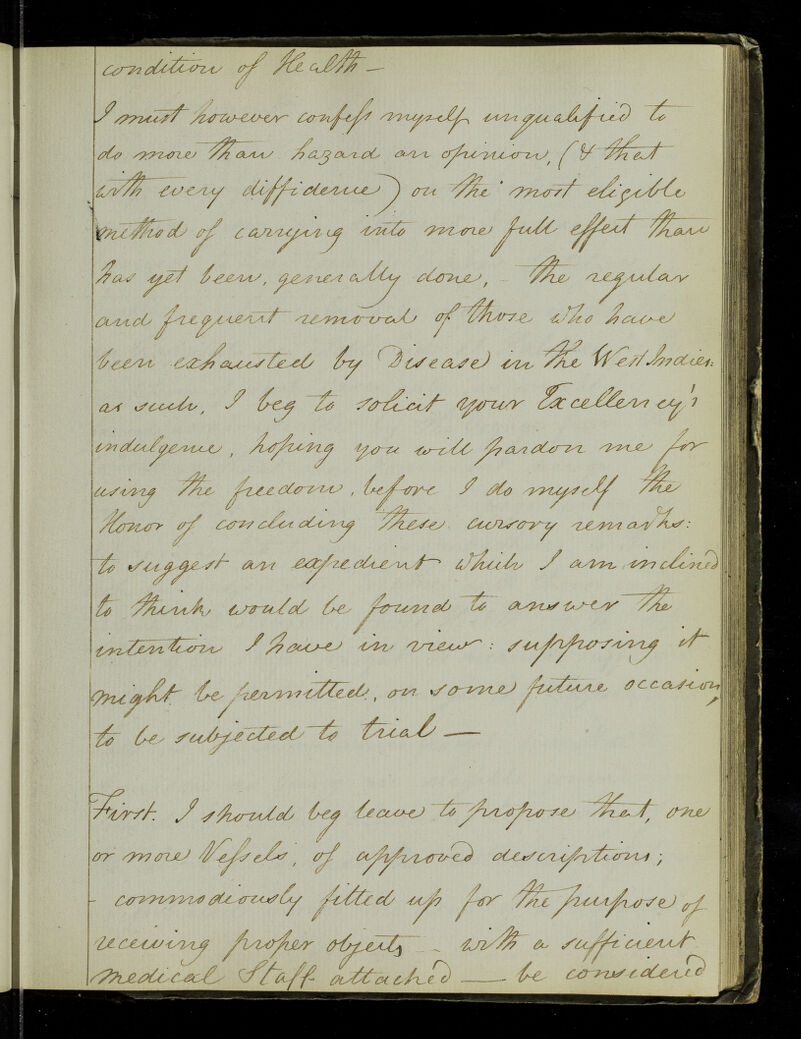 condition of Health -
I must however confess myself unqualified to
do more than hazard an opinion, (& that
with every diffidence) on the most eligible
method of carrying into more full effect than
has yet been, generally done, - the regular
and frequent removal of those who have
been exhausted by Disease in the West Indies:
as such, I beg to solicit your Excellency's
indulgence, hoping you will pardon me for
using the freedom, before I do myself the
Honor of concluding these cursory remarks:
to suggest an expedient which I am inclined
to think would be found to answer the
intention I have in view: supposing it
might be permitted, on some future occasion,
to be subjected to trial —
First. I should beg leave to propose that, one
or more Vessels, of approved descriptions;
- commodiously fitted up for the purpose of
receiving proper objects - with a sufficient
medical Staff attached — be considered